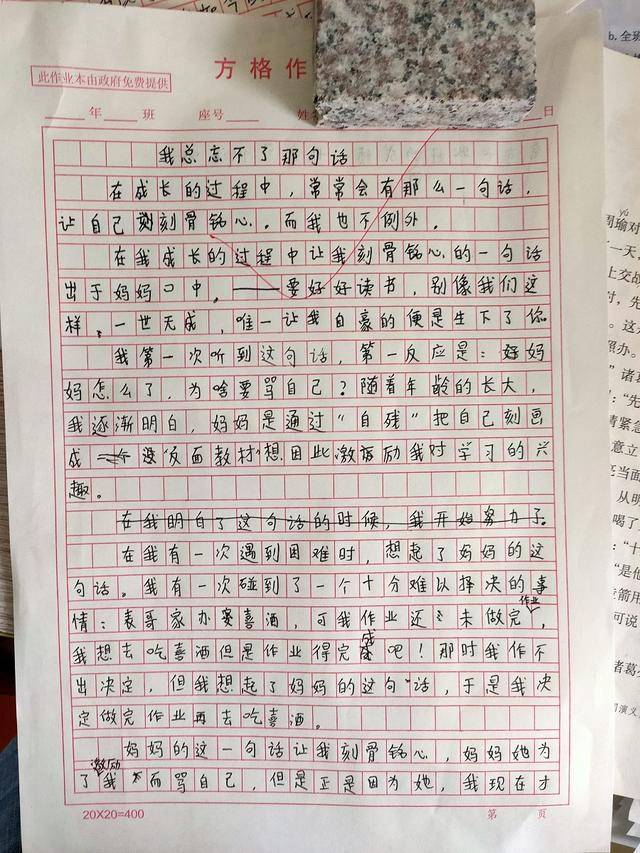 此作业本由政府免费提供
方格作
年 班 座号 姓 日
我总忘不了那句话
在成长的过程中，常常会有那么一句话，
让自己刻刻骨铭心。而我也不例外。
在我成长的过程中让我刻骨铭心的一句话
出于妈妈口中。——要好好读书，别像我们这
样，一世无成，唯一让我自豪的便是生下了你。
我第一次听到这句话，第一反应是：好妈
妈怎么了，为啥要骂自己？随着年龄的长大，
我逐渐明白，妈妈是通过“自残”把自己刻画
成一个 反面教材 想因此激励我对学习的兴
趣。
在我明白了这句话的时候，我开始努力了。
在我有一次遇到困难时，想起了妈妈的这
句话。我有一次碰到了一个十分难以择决的事
情：表哥家办宴喜酒，可我作业还未做完作业，
我想去吃喜酒但是作业得完成吧！那时我作不
出决定，但我想起了妈妈的这句话，于是我决
定做完作业再去吃喜酒。
妈妈的这一句话让我刻骨铭心，妈妈她为
了激励我 而骂自己，但是正是因为她，我现在才
20X20=400 第 页
b.全班
yú
周瑜对
一天，
上交战
对，先
。这
照办。
”诸
：“先
情紧急
意立
死当面
从明
喝了
：“十
“是他
箭用
可说
诸葛
演义